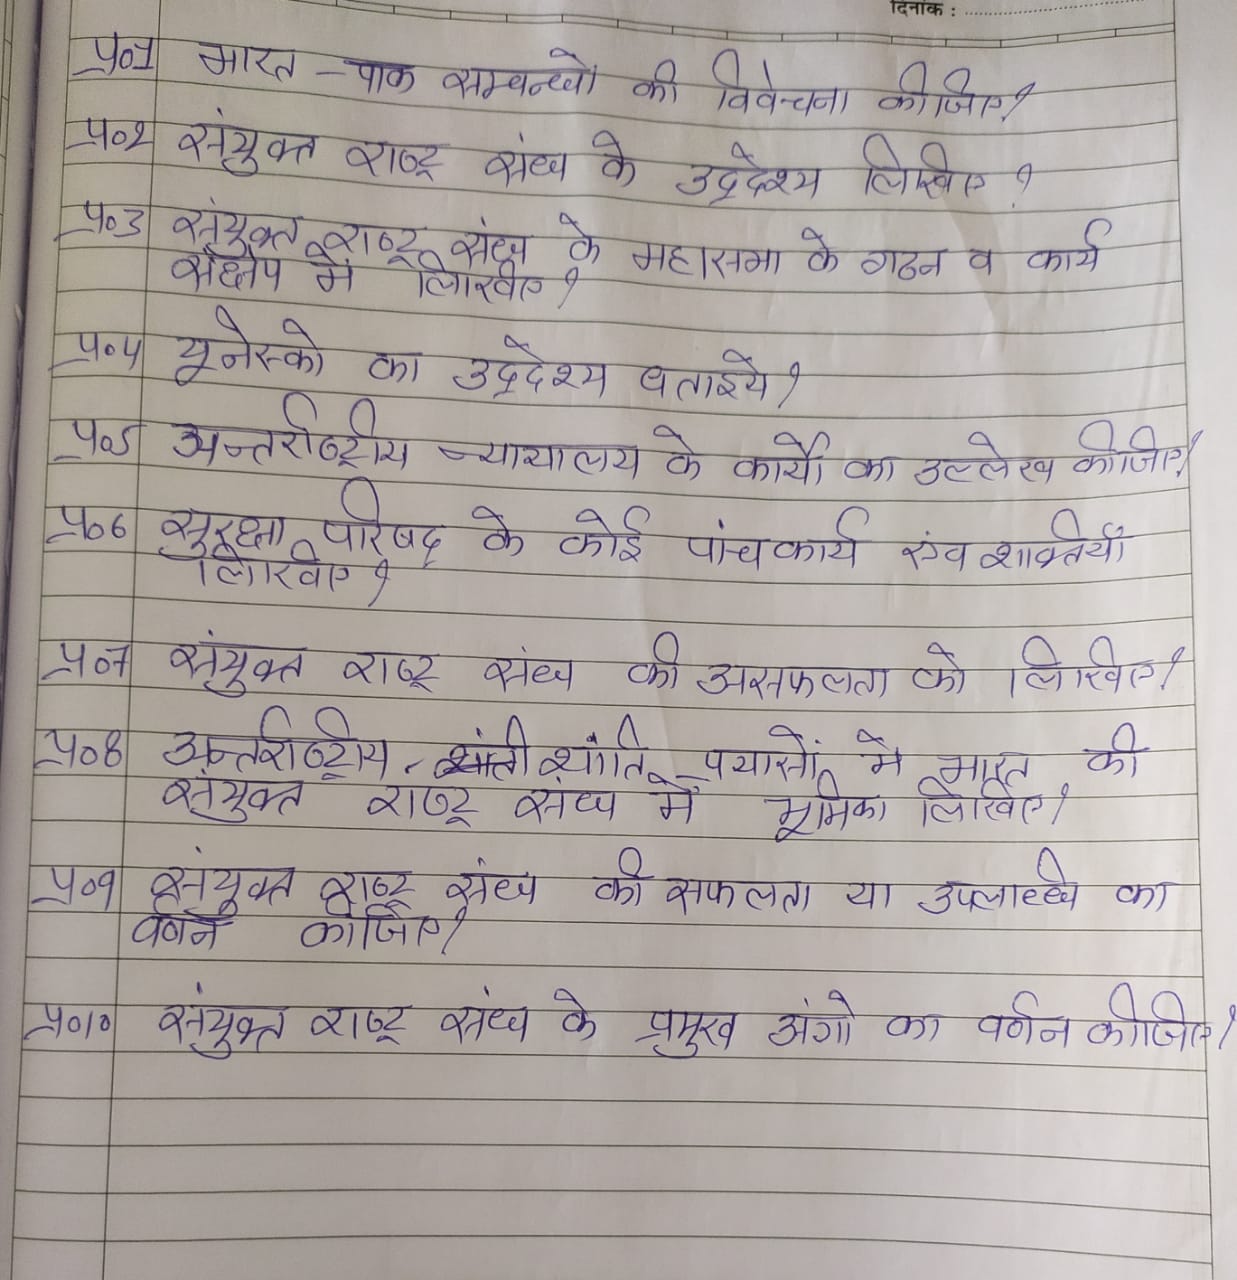 दिनांक :
प्र०1 भारत - पाक सम्बन्धो की विवेचना कीजिए?
प्र०2 संयुक्त राष्ट्र संघ के उद्देश्य लिखिए ?
प्र०3 संयुक्त राष्ट्र संघ के महासभा के गठन व कार्य
संक्षेप में लिखिए ?
प्र०4 यूनेस्को का उद्देश्य बताइये ?
प्र०5 अन्तर्राष्ट्रीय न्यायालय के कार्यो का उल्लेख कीजिए?
प्र०6 सुरक्षा परिषद के कोई पांच कार्य एंव शक्तियाँ
लिखिए ?
प्र०7 संयुक्त राष्ट्र संघ की असफलता को लिखिए?
प्र०8 अन्तर्राष्ट्रीय शांति प्रयासों में भारत की
संयुक्त राष्ट्र संघ में भूमिका लिखिए?
प्र०9 संयुक्त राष्ट्र संघ की सफलता या उपलब्धि का
वर्णन कीजिए?
प्र०10 संयुक्त राष्ट्र संघ के प्रमुख अंगो का वर्णन कीजिए?